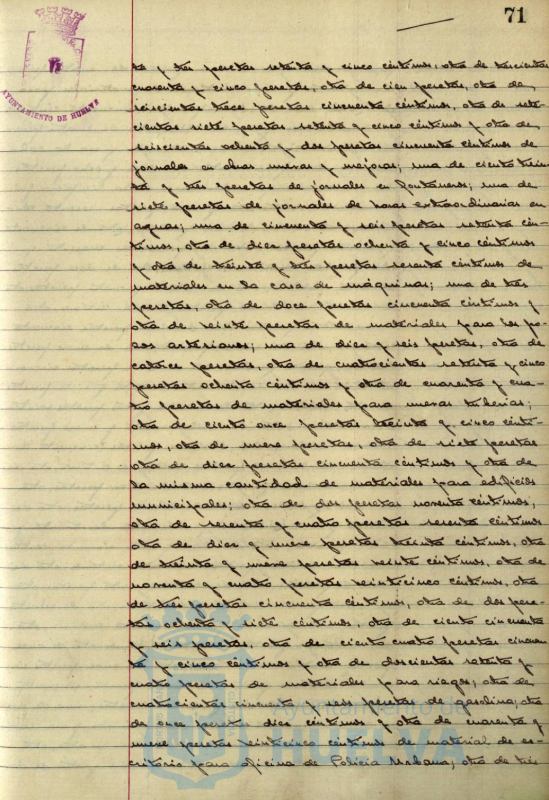 71
AYUNTAMIENTO DE HUELVA
ta y tres pesetas setenta y cinco céntimos, otra de trescientas
cuarenta y cinco pesetas, otra de cien pesetas, otra de
seiscientas trece pesetas cincuenta céntimos, otra de sete-
cientas siete pesetas setenta y cinco céntimos y otra de
seiscientas ochenta y dos pesetas cincuenta céntimos de
jornales en obras nuevas y mejoras; una de ciento trein-
ta y tres pesetas de jornales en fontaneros; una de
siete pesetas de jornales de horas extraordinarias en
aguas; una de cincuenta y seis pesetas setenta cén-
timos, otra de diez pesetas ochenta y cinco céntimos
y otra de treinta y tres pesetas sesenta céntimos de
materiales en la casa de máquinas; una de tres
pesetas, otra de doce pesetas cincuenta céntimos y
otra de veinte pesetas de materiales para los po-
zos artesianos; una de diez y seis pesetas, otra de
catorce pesetas, otra de cuatrocientas setenta y cinco
pesetas ochenta céntimos y otra de cuarenta y cua-
tro pesetas de materiales para nuevas tuberías;
otra de ciento once pesetas treinta y cinco cénti-
mos, otra de nueve pesetas, otra de siete pesetas
otra de diez pesetas cincuenta céntimos y otra de
la misma cantidad de materiales para edificios
municipales; otra de dos pesetas noventa céntimos,
otra de sesenta y cuatro pesetas sesenta céntimos
otra de diez y nueve pesetas treinta céntimos, otra
de treinta y nueve pesetas veinte céntimos, otra de
noventa y cuatro pesetas veinticinco céntimos, otra
de tres pesetas cincuenta céntimos, otra de dos pese-
tas ochenta y siete céntimos, otra de ciento cincuenta
y seis pesetas, otra de ciento cuatro pesetas cincuen-
ta y cinco céntimos y otra de doscientas setenta y
cuatro pesetas de materiales para riegos; otra de
cuatrocientas cincuenta y seis pesetas de gasolina; otra
de once pesetas diez céntimos y otra de cuarenta y
nueve pesetas veinticinco céntimos de material de es-
critorio para oficina de Policía Urbana; otra de tres
Ayuntamiento de
HUELVA